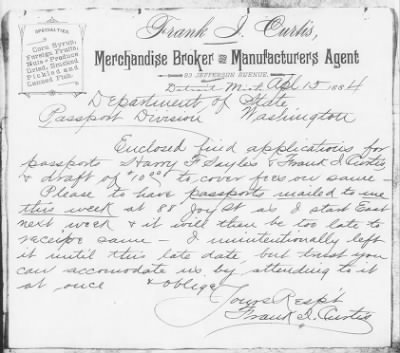 SPECIALTIES.
Corn Syrup,
Foreign Fruits,
Nuts & Produce
Dried, Smoked
Pickled and
Canned Fish.
Frank I. Curtis,
Merchandise Broker and Manufacturers Agent
JEFFERSON AVENUE.
Detroit Mich Apl 15 1884
Department of State
Passport Division Washington
Enclosed find applications for
passports Harry F Sayles & Frank I. Curtis
& draft of to cover fees on same
Please to have passports mailed to me
this week at 88 Joy St as I start East
next week & it will then be too late to
receive same — I unintentionally left
it until this late date, but trust you
can accomodate us by attending to it
at once & oblige
Yours Resp't
Frank I. Curtis